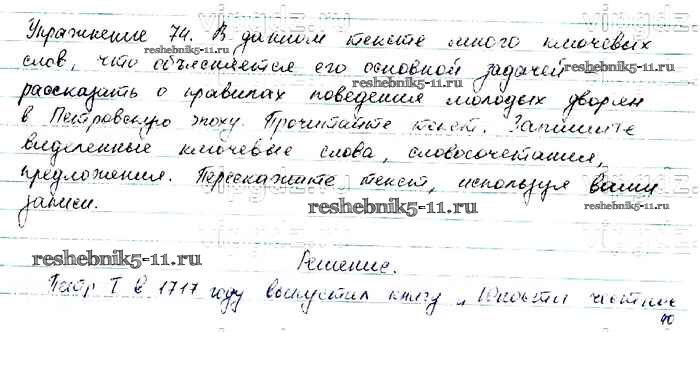 Упражнение 74. В данном тексте много ключевых
слов, что объясняется его основной задачей
рассказать о правилах поведения молодых дворян
в Петровскую эпоху. Прочитайте текст. Запишите
виделенные ключевые слова, словосочетания,
предложения. Перескажите текст, используя ваши
записи.
Решение.
Петр I в 1717 году выпустил книгу „Юности честное
40
vingdz.ru
reshebnik5-11.ru
reshebnik5-11.ru
reshebnik5-11.ru
reshebnik5-11.ru
reshebnik5-11.ru